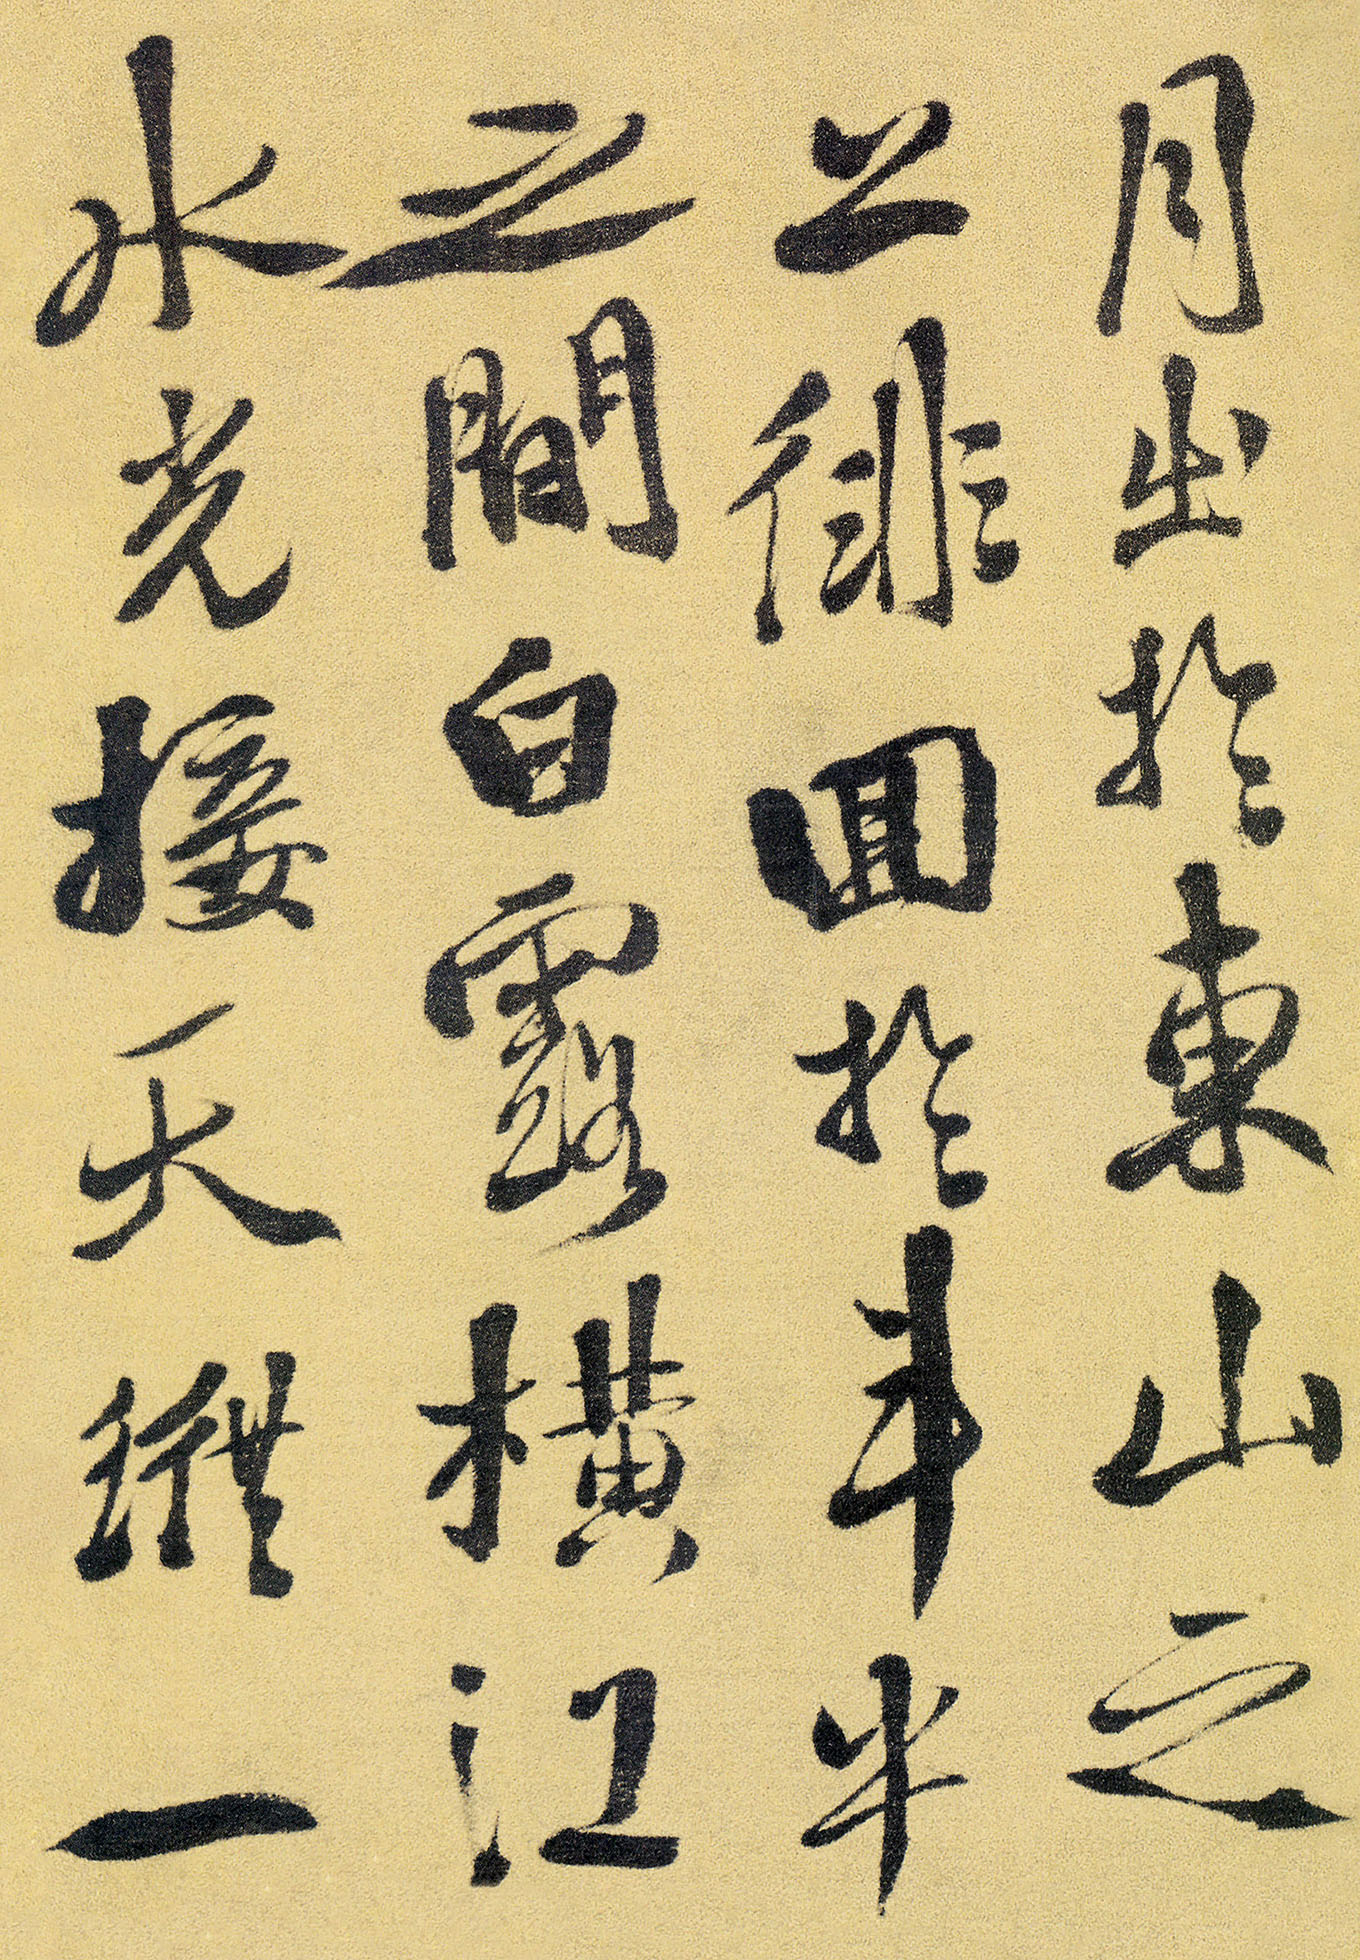 月出於東山之
上徘囬於斗牛
之間白露橫江
水光接天縱一